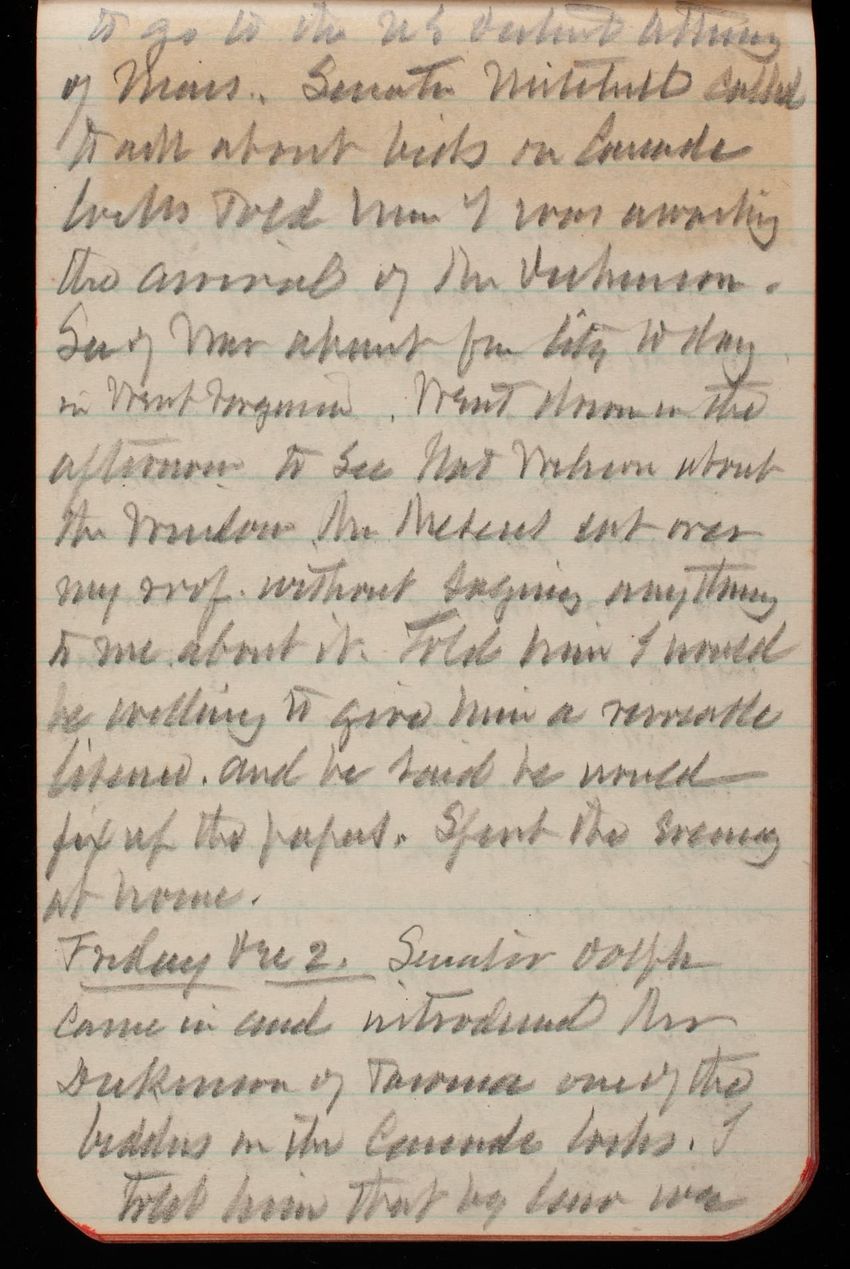 to go to the US District Attorney
of Mass. Senator Mitchell called
to ask about bids on Cascade
locks Told him I was awaiting
the arrival of Mr Dickinson.
Sec of War absent from city to day
in West Virginia. Went down in the
afternoon to see Nat Wilson about
the window Mr cut over
my roof without saying anything
to me about it. Told him I would
be willing to give him a revocable
license. and he said he would
fix up the papers. Spent the evening
at home.
Friday Dec 2. Senator Dolph
came in and introduced Mr
Dickinson of Tacoma one of the
bidders on the Cascade locks. I
Told him that by law we